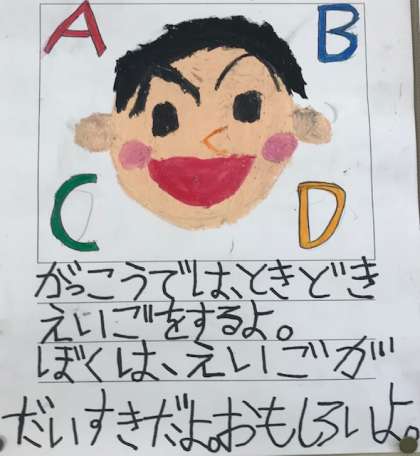 A B
C D
がっこうでは、ときどき
えいごをするよ。
ぼくは、えいごが
だいすきだよ。おもしろいよ。